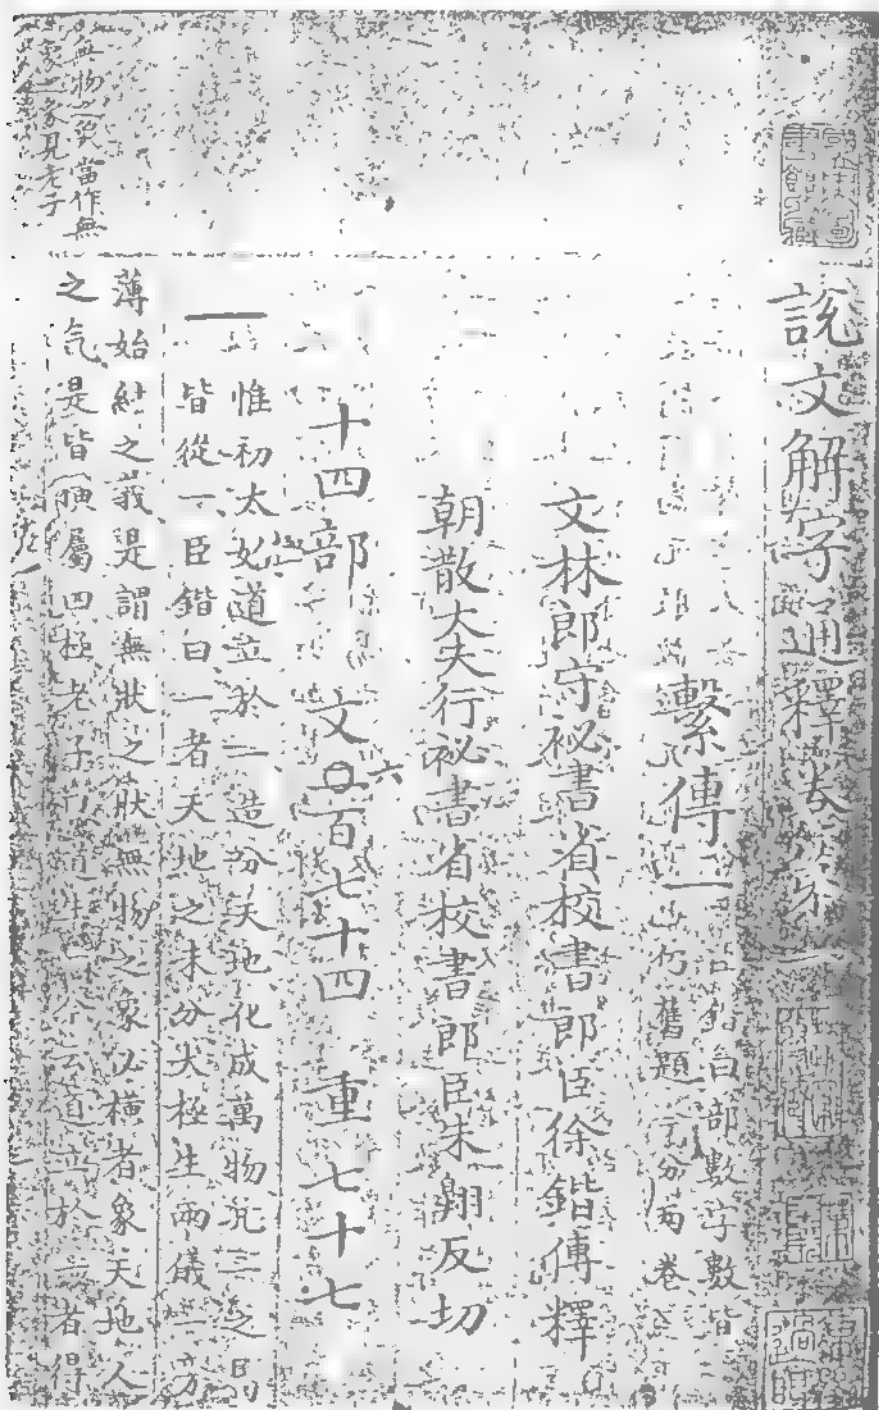 說文解字通釋卷第一
繫傳一 臣鍇曰部數字數皆仍舊題今分兩卷
文林郎守祕書省校書郎臣徐鍇傳釋
朝散大夫行祕書省校書郎臣朱翱反切
十四部 文二百七十四 重七十七
六
一 惟初太始道立於一造分天地化成萬物凡一之屬
皆從一臣鍇曰一者天地之未分太極生兩儀一旁
薄始結之義是謂無狀之狀無物之象必橫者象天地人
之气是皆橫屬四極老子曰道生一今云道立於一者得
無物之象當作無
象之象見老子